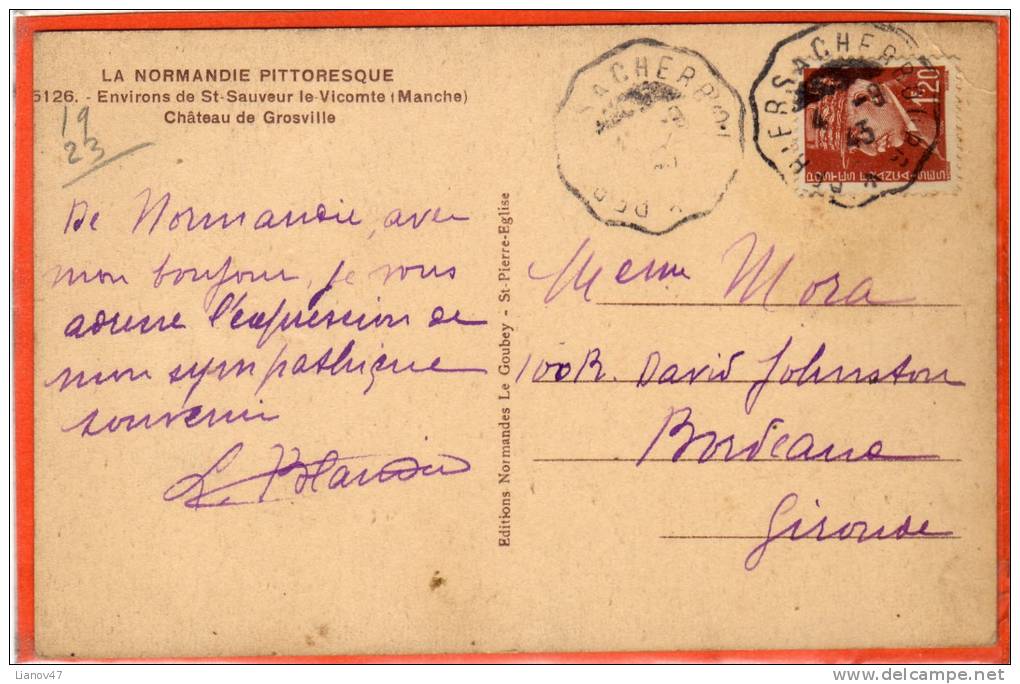 LA NORMANDIE PITTORESQUE
5126. - Environs de St-Sauveur le-Vicomte (Manche)
Château de Grosville
19
23
De Normandie, avec
mon bonjour, je vous
adresse l'expression de
mon sympathique
souvenir
Editions Normandes Le Goubey - St-Pierre-Eglise
Mora
100 R. David Johnston
Bordeaux
Gironde
1F20
Lianov47
delcampe.net